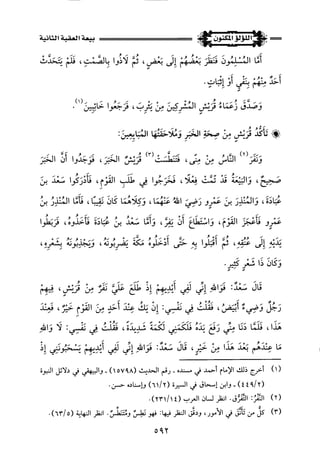 اللؤلؤ المكنون
بيعة العقبة الثانية
أَمَّا المُسْلِمُونَ فَنَظَرَ بَعْضُهُمْ إِلَى بَعْضٍ، ثُمَّ لَاذُوا بِالصَّمْتِ، فَلَمْ يَتَحَدَّثْ
أَحَدٌ مِنْهُمْ بِنَفْيٍ أَوْ إِثْبَاتٍ.
وَصَدَّقَ زُعَمَاءُ قُرَيْشٍ المُشْرِكِينَ مِنْ يَثْرِبَ، فَرَجَعُوا خَائِبِينَ(١).
* تَأَكُّدُ قُرَيْشٍ مِنْ صِحَّةِ الخَبَرِ وَمُلَاحَقَتُهَا المُبَايِعِينَ:
وَنَفَرَ(٢) النَّاسُ مِنْ مِنًى، فَتَنَطَّسَتْ(٣) قُرَيْشٌ الخَبَرَ، فَوَجَدُوا أَنَّ الخَبَرَ
صَحِيحٌ، وَالبَيْعَةُ قَدْ تَمَّتْ فِعْلًا، فَخَرَجُوا فِي طَلَبِ القَوْمِ، فَأَدْرَكُوا سَعْدَ بنَ
عُبَادَةَ، وَالمُنْذِرَ بنَ عَمْرٍو رَضِيَ اللهُ عَنْهُمَا، وَكِلَاهُمَا كَانَ نَقِيبًا، فَأَمَّا المُنْذِرُ بنُ
عَمْرٍو فَأَعْجَزَ القَوْمَ، وَاسْتَطَاعَ أَنْ يَفِرَّ، وَأَمَّا سَعْدُ بنُ عُبَادَةَ فَأَخَذُوهُ، فَرَبَطُوا
يَدَيْهِ إِلَى عُنُقِهِ، ثُمَّ أَقْبَلُوا بِهِ حَتَّى أَدْخَلُوهُ مَكَّةَ يَضْرِبُونَهُ، وَيَجْذِبُونَهُ بِشَعْرِهِ،
وَكَانَ ذَا شَعْرٍ كَثِيرٍ.
قَالَ سَعْدٌ: فَوَاللهِ إِنِّي لَفِي أَيْدِيهِمْ إِذْ طَلَعَ عَلَيَّ نَفَرٌ مِنْ قُرَيْشٍ، فِيهِمْ
رَجُلٌ وَضِيءٌ أَبْيَضُ، فَقُلْتُ فِي نَفْسِي: إِنْ يَكُ عِنْدَ أَحَدٍ مِنَ القَوْمِ خَيْرٌ، فَعِنْدَ
هَذَا، فَلَمَّا دَنَا مِنِّي رَفَعَ يَدَهُ فَلَكَمَنِي لَكْمَةً شَدِيدَةً، فَقُلْتُ فِي نَفْسِي: لَا وَاللهِ
مَا عِنْدَهُمْ بَعْدَ هَذَا مِنْ خَيْرٍ، قَالَ سَعْدٌ: فَوَاللهِ إِنِّي لَفِي أَيْدِيهِمْ يَسْحَبُونِي إِذْ
(١) أخرج ذلك الإمام أحمد في مسنده ـ رقم الحديث (١٥٧٩٨) ـ والبيهقي في دلائل النبوة
(٤٤٩/٢) ـ وابن إسحاق في السيرة (٦١/٢) وإسناده حسن.
(٢) النَّفْرُ: التَّفَرُّق. انظر لسان العرب (٢٣١/١٤).
(٣) كلُّ من تَأَنَّق في الأمور، ودقَّق النظر فيها: فهو نَطِسٌ ومُتَنَطِّسٌ. انظر النهاية (٦٣/٥).
٥٩٢